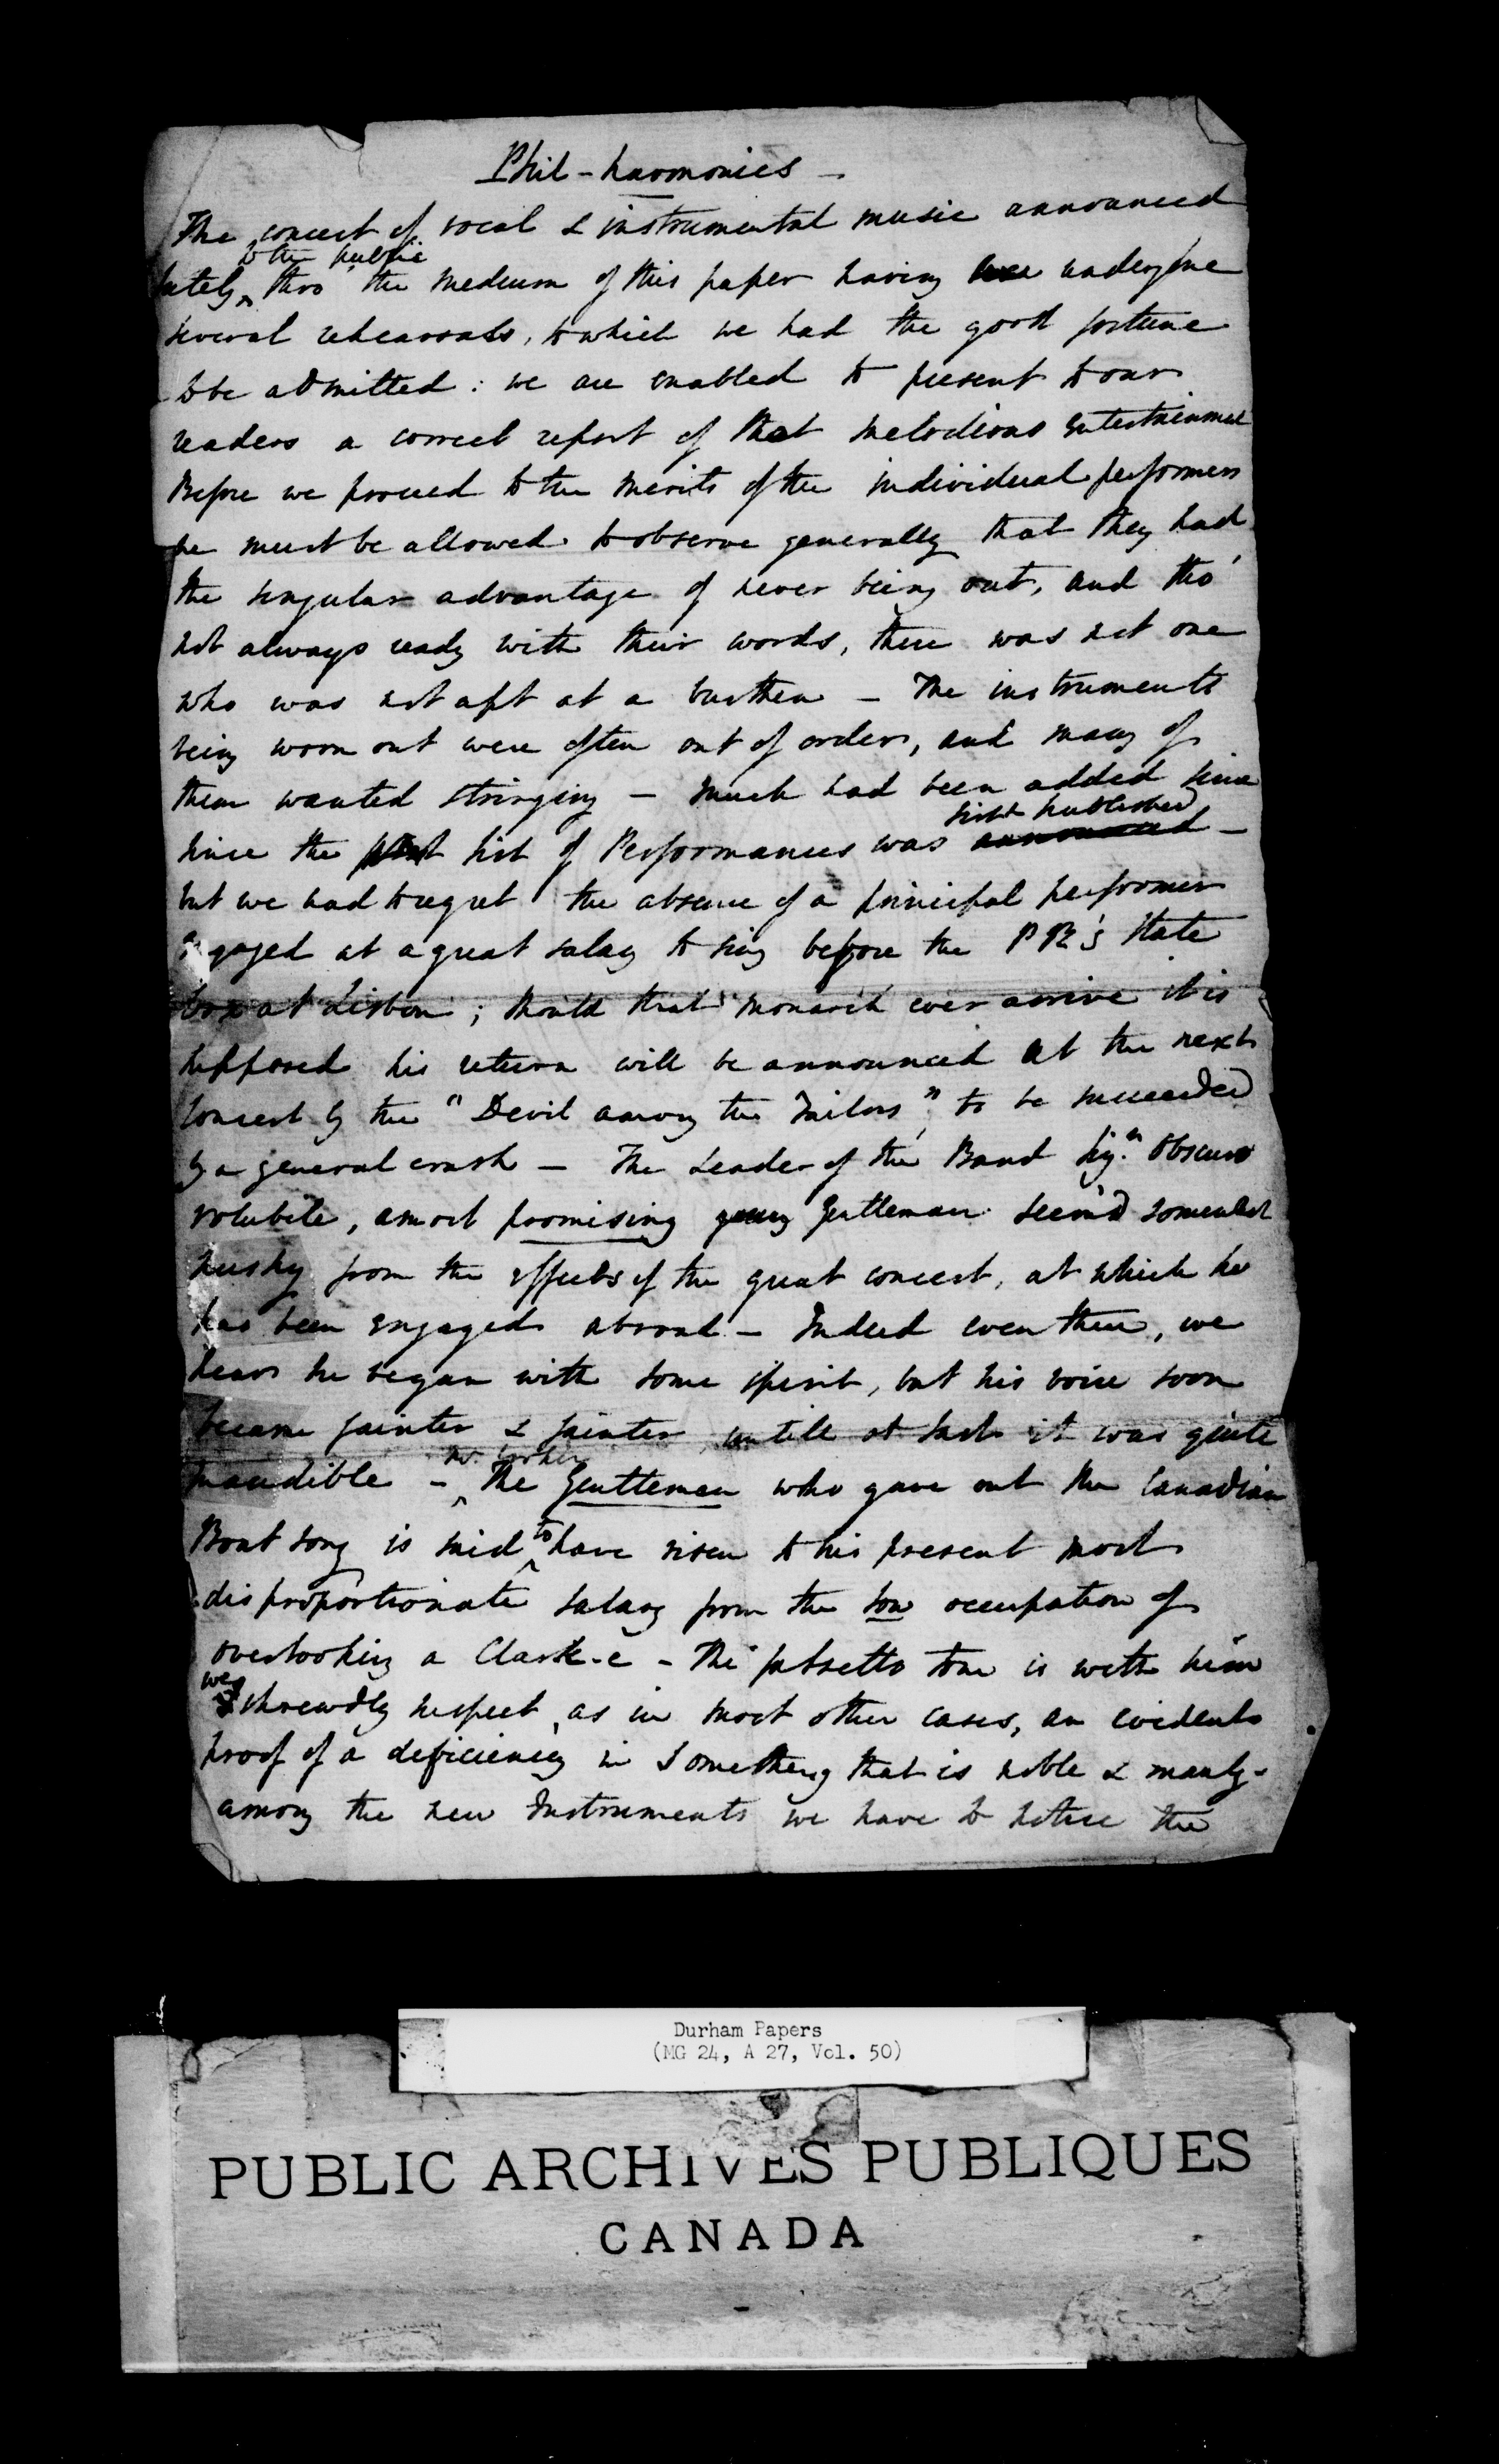 Phil-harmonics -
The concert of vocal & instrumental music announced
to the public
lately thro' the medium of this paper having undergone
several rehearsals, to which we had the good fortune
to be admitted : we are enabled to present to our
readers a correct report of that melodious entertainment
Before we proceed to the merits of the individual performers
we must be allowed to observe generally that they had
the singular advantage of never being out, and tho'
not always ready with their words, there was not one
who was not apt at a burthen - The instruments
being worn out were often out of order, and many of
them wanted stringing - Much had been added since
first published
since the list of Performances was announced -
but we had to regret the absence of a principal performer
engaged at a great salary to sing before the PR's State
box at Lisbon ; should that Monarch ever arrive it is
supposed his return will be announced at the next
Concert by the "Devil among the Tailors", to be succeeded
by a general crash - The Leader of the Band Sigr. Obscuro
volubile, a most promising young Gentleman seem'd somewhat
husky from the effects of the great concert, at which he
has been engaged abroad - Indeed even there, we
hear he began with some spirit, but his voice soon
became fainter & fainter untill at last it was quite
Mr. Croker
inaudible - The Gentleman who gave out the Canadian
Boat song is said to have risen to his present most
disproportionate salary from the low occupation of
overlooking a Clark-e - The falsetto tone is with him
we
shrewdly suspect, as in most other cases, an evident
proof of a deficiency in something that is noble & manly -
among the new Instruments we have to notice the
Durham Papers
(MG 24, A 27, Vol. 50)
PUBLIC ARCHIVES PUBLIQUES
CANADA